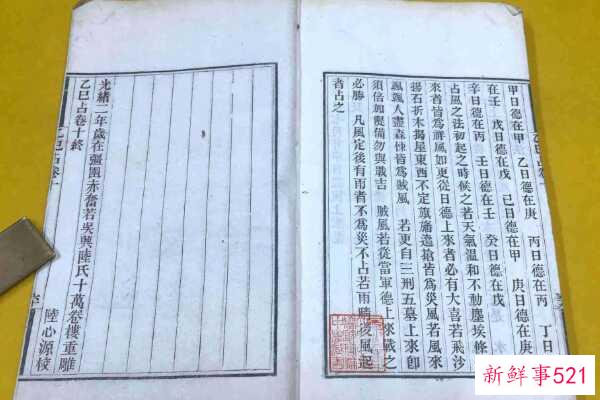 甲日德在甲　乙日德在庚　丙日德在丙　丁日
在壬　戊日德在戊　己日德在甲　庚日德在庚
辛日德在丙　壬日德在壬　癸日德在戊
占風之法初起之時候之若天氣溫和不動塵埃條
來者皆為祥風如更從日德上來者必有大喜若飛沙
揚石折木揭屋東西不定旗旛遶槍皆為災風若風來
颯颯人盡森悚皆為賊風　若更自三刑五墓上來即
須信如覩備勿與戰吉　賊風若從當軍德上來戰之
必勝　凡風定後有雨者不為災不占若雨晴後風起
者占之
乙巳占卷十
光緒二年歲在彊圉赤奮若吳興陸氏十萬卷樓重雕
乙巳占卷十終
陸心源校
乙巳占卷十
新鮮事521